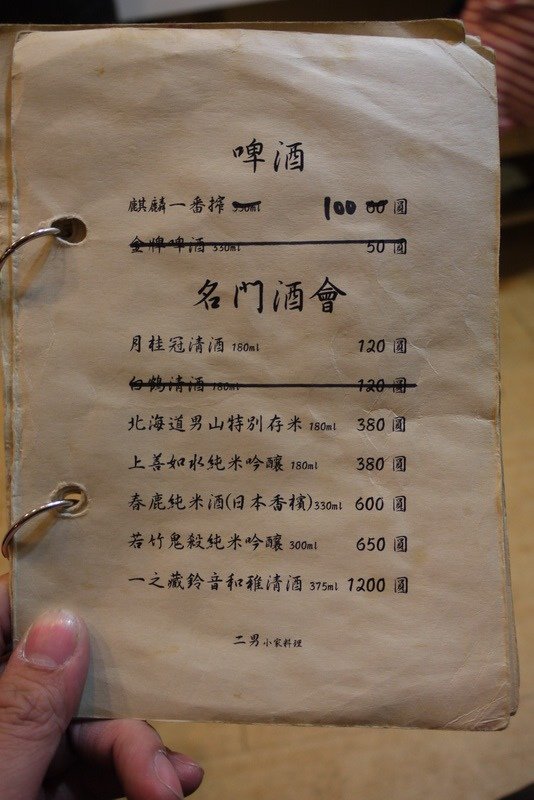 啤酒
麒麟一番搾 330ml 100 60 圓
金牌啤酒 330ml 50 圓
名門酒會
月桂冠清酒 180ml 120 圓
白鶴清酒 180ml 120 圓
北海道男山特別存米 180ml 380 圓
上善如水純米吟釀 180ml 380 圓
春鹿純米酒(日本香檳) 330ml 600 圓
若竹鬼殺純米吟釀 300ml 650 圓
一之藏鈴音和雅清酒 375ml 1200 圓
二男小家料理